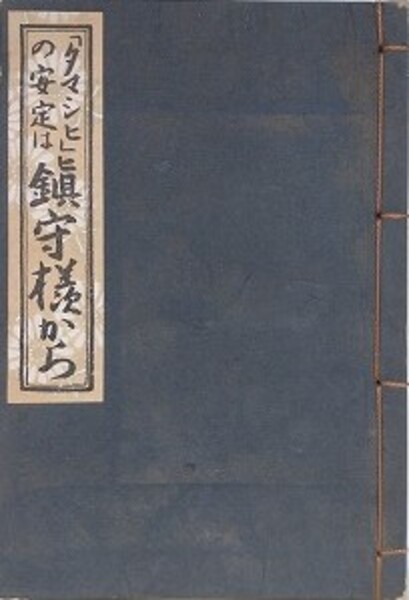 「タマシヒ」
の安定は
鎮守様から